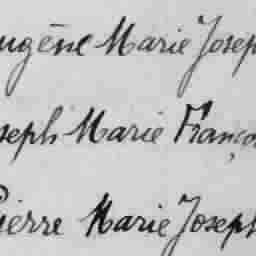 ugène Marie Josep
seph Marie Franço
Pierre Marie Joseph